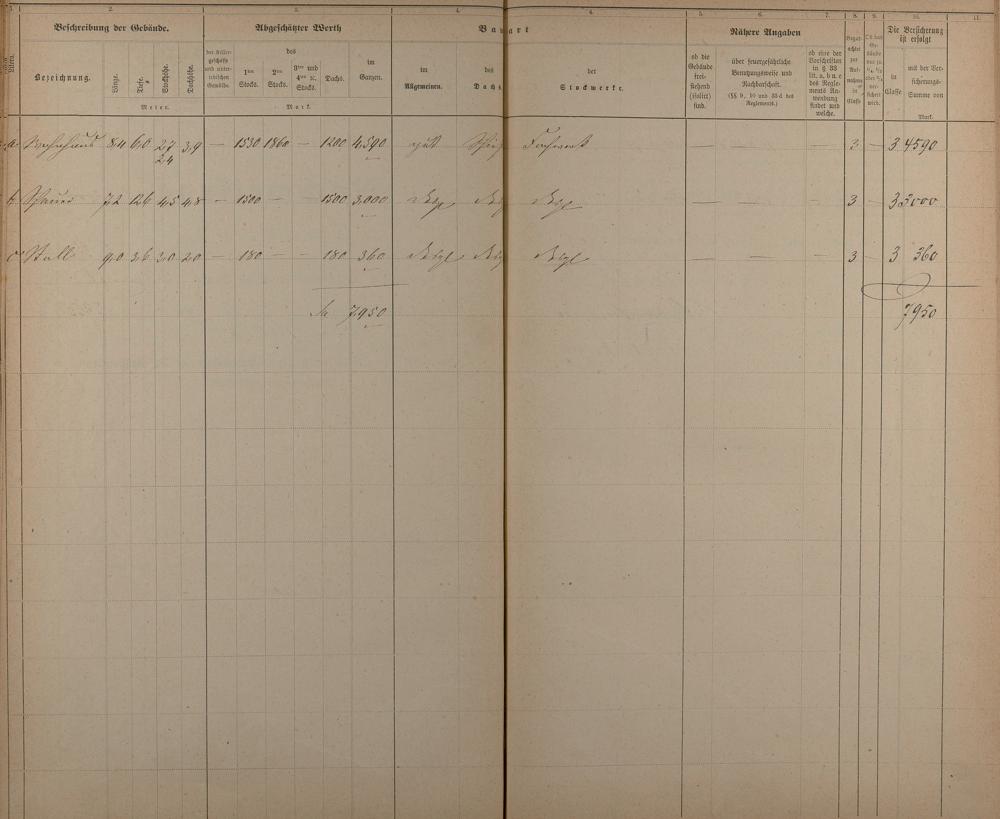 1. 2. 3. 4. 4. 5. 6. 7. 8. 9. 10. 11.
Beschreibung der Gebände. Abgeschätzter Werth Bauart Nähere Angaben Die Versicherung ist erfolgt
Litera. Bezeichnung. Länge. Tiefe. Stockhöhe. Dachhöhe. der Kellergeschosse und unterirdischen Gewölbe. des 1ten Stocks. 2ten Stocks. 3ten und 4ten ꝛc. Stocks. Dachs. im Ganzen. im Allgemeinen. des Dachs. der Stockwerke.
ob die Gebäude freistehend (isolirt) sind. über feuergefährliche Benutzungsweise und Nachbarschaft. (§§ 9, 10 und 33 d des Reglements.) ob eine der Vorschriften in § 33 lit. a. b. c des Reglements Anwendung findet und welche. in Classe mit der Versicherungs-Summe von
Meter. Mark. Mark.
a. Wohnhaus 8,4 6,0 2,7 2,4 3,9 — 1530 1860 — 1200 4,590 gut Fachwerk — — 3 — 3 4590
b. Scheuer 7,2 12,6 4,5 4,8 — 1500 — 1500 3,000 — — — 3 — 3 3000
c. Stall 9,0 3,6 3,0 2,0 — 180 — — 180 360 — — 3 — 3 360
7,950 7950